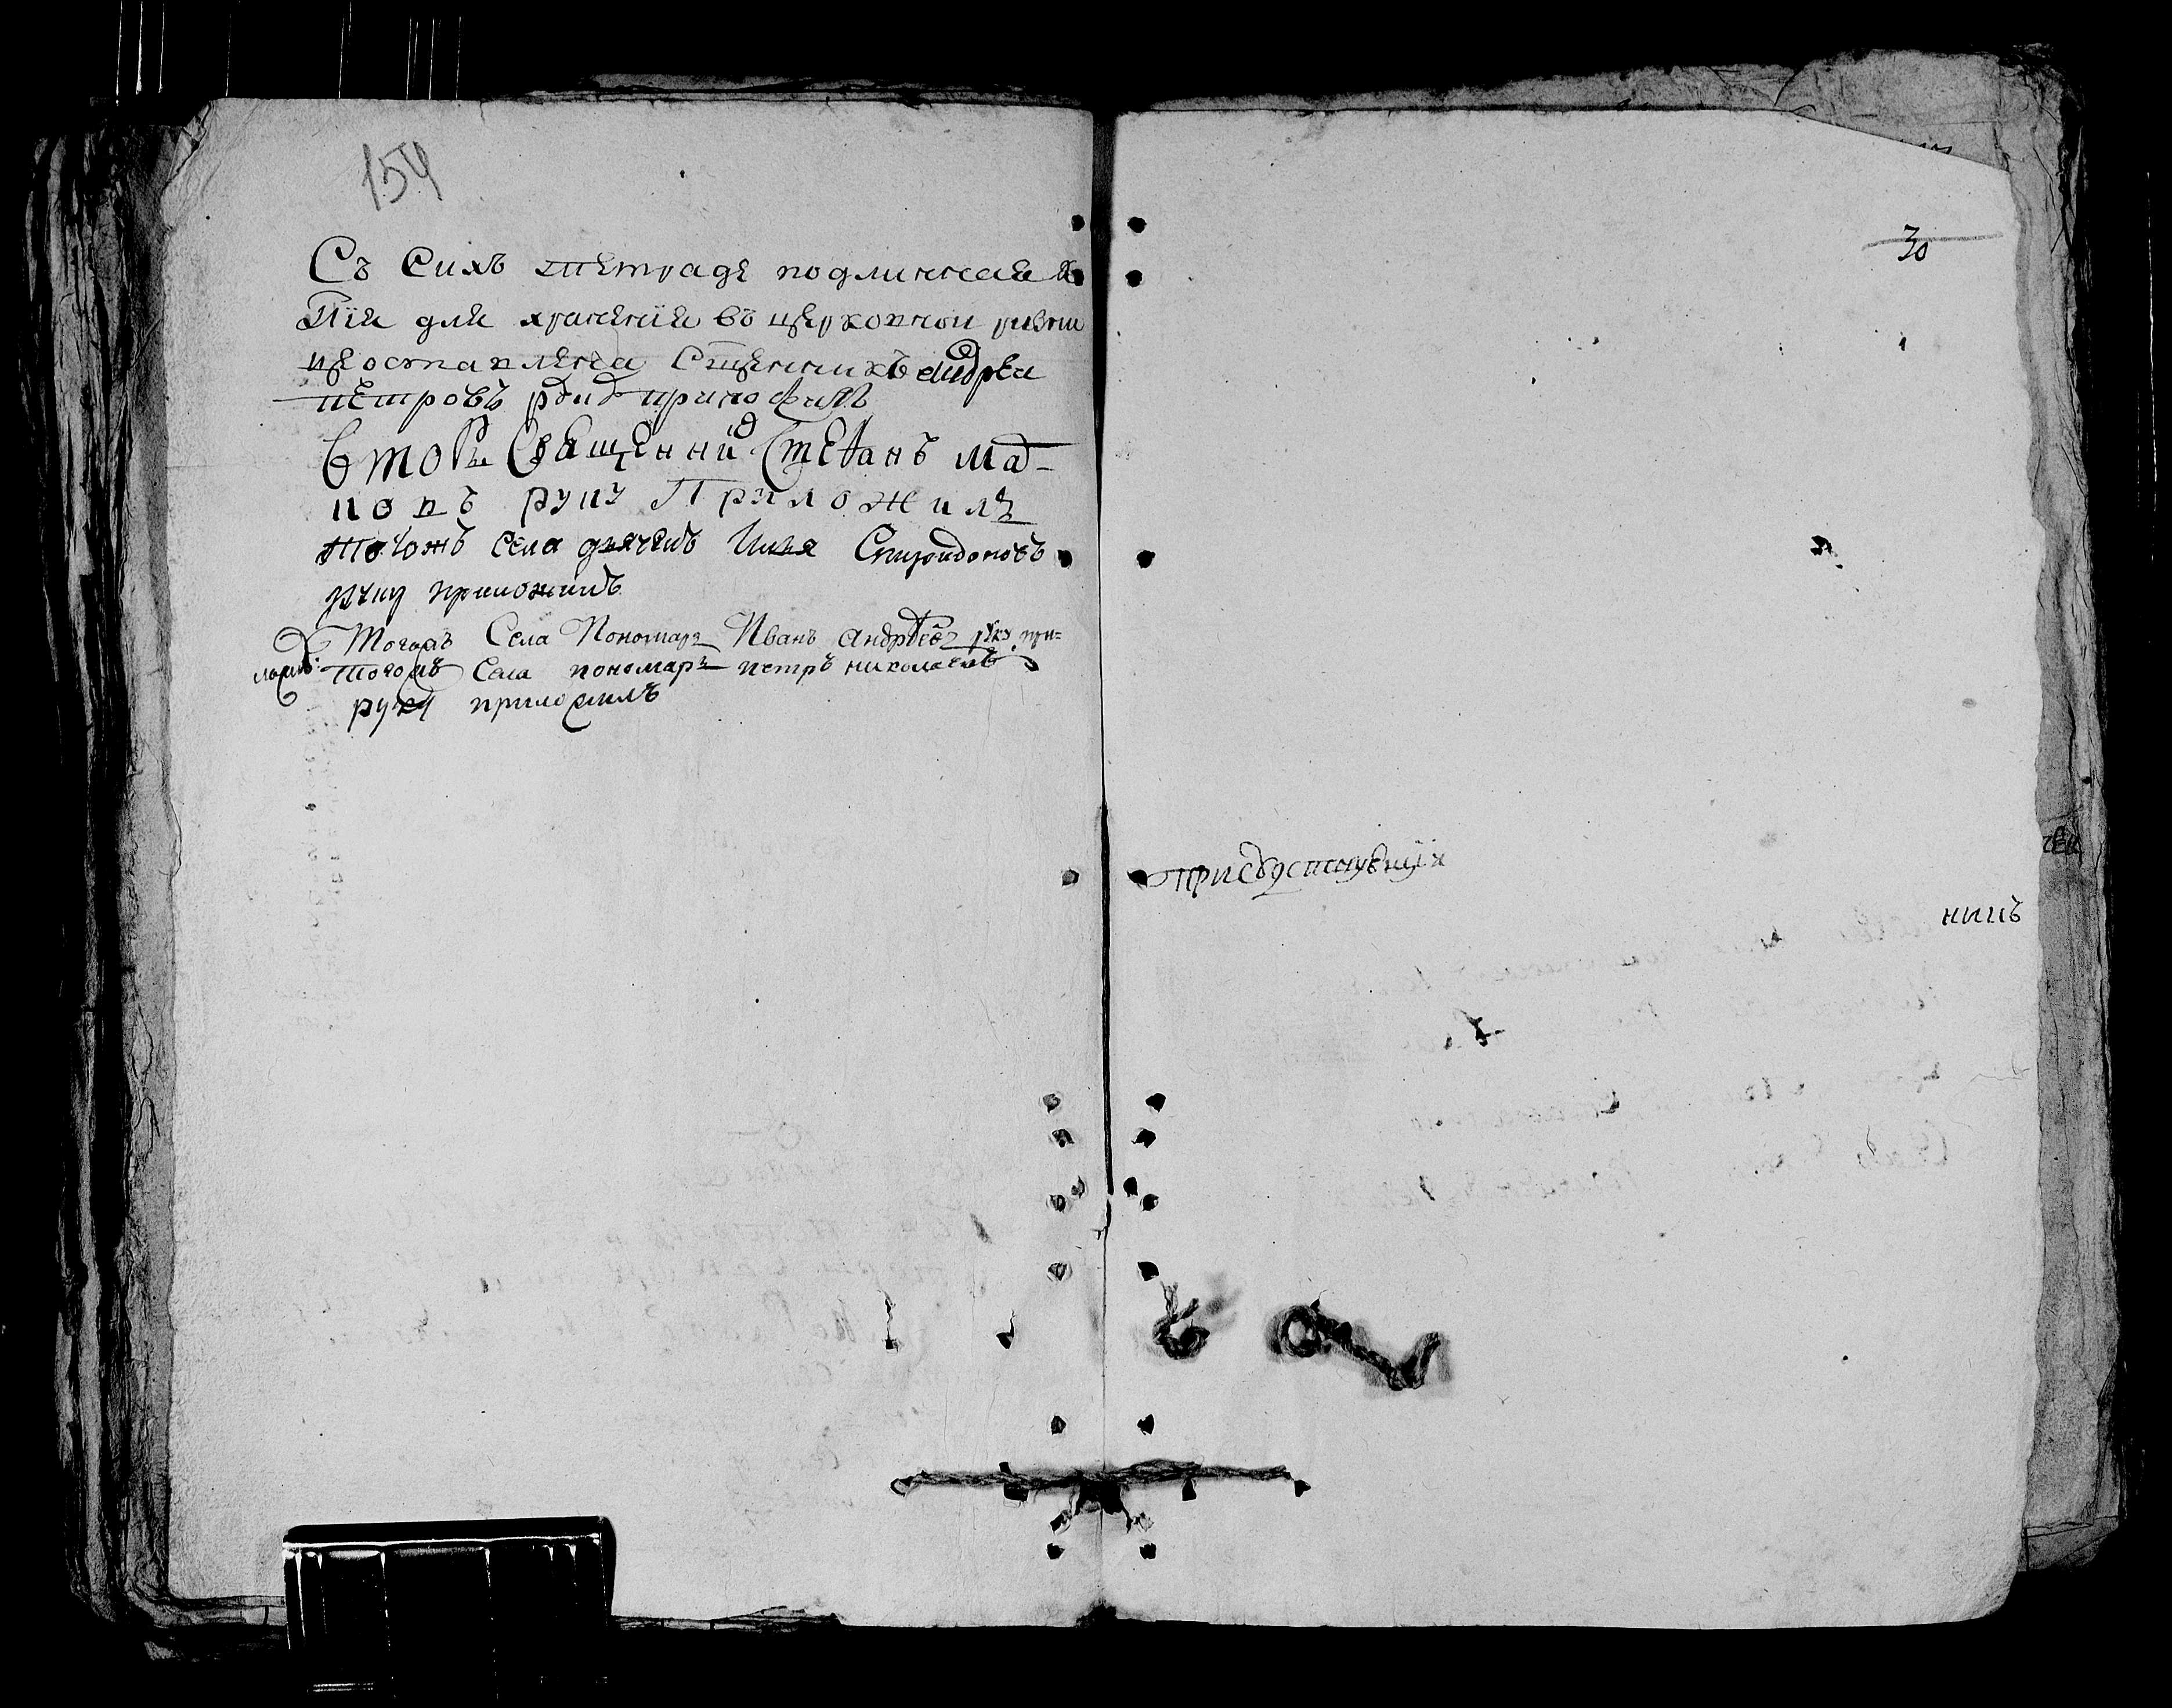 154
Съ сихъ тетраде подлинная ко
пїя для храненїя въ церковнои ризни
це оставлена Сщенникъ Андреи
петровъ
Второи Священникъ Стефанъ Ма-
руку Приложилъ
Тогожъ села дьячекъ Илья Спиридоновъ
руку приложилъ
Тогожъ Села Пономарь Иванъ Андреевъ руку при-
ложилъ: Тогожъ села пономарь петръ николаевъ
руку приложилъ
30
никъ